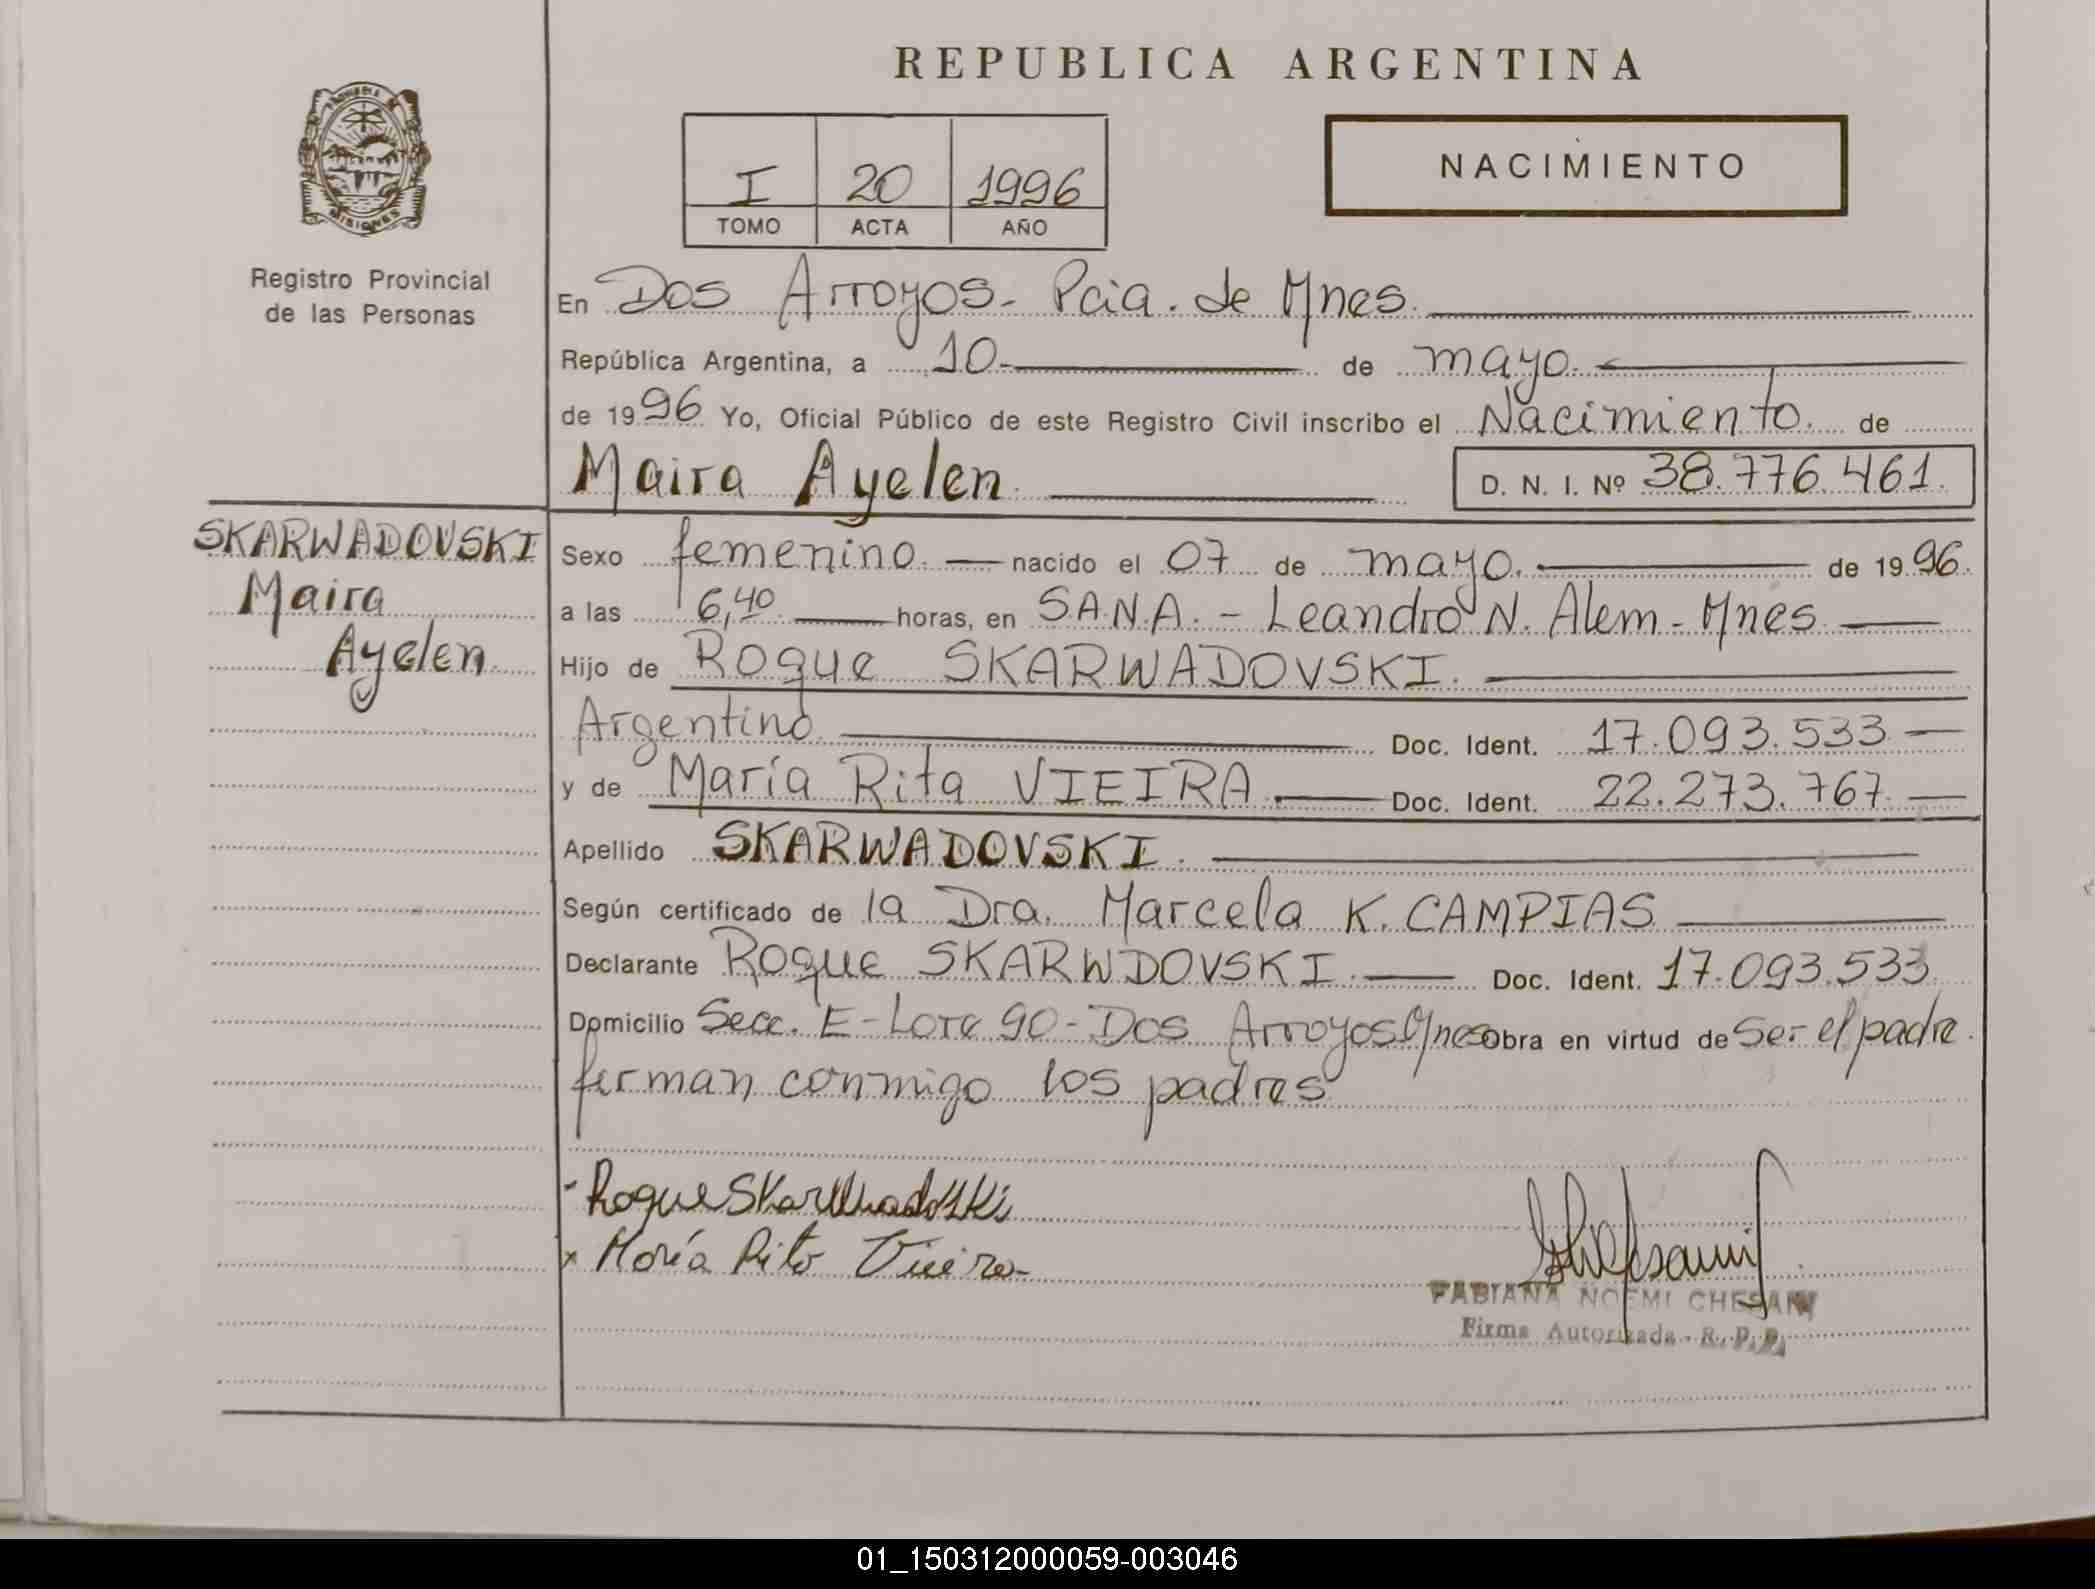 REPUBLICA ARGENTINA
MISIONES
Registro Provincial
de las Personas
I 20 1996
TOMO ACTA AÑO
NACIMIENTO
En Dos Arroyos - Pcia. de Mnes.
República Argentina, a 10 de mayo.
de 1996 Yo, Oficial Público de este Registro Civil inscribo el Nacimiento. de
Maira Ayelen. D. N. I. Nº 38.776.461.
SKARWADOVSKI
Maira
Ayelen.
Sexo femenino. nacido el 07 de mayo. de 1996.
a las 6,40 horas, en S.A.N.A. - Leandro N. Alem - Mnes
Hijo de Roque SKARWADOVSKI.
Argentino. Doc. Ident. 17.093.533
y de María Rita VIEIRA. Doc. Ident. 22.273.767.
Apellido SKARWADOVSKI.
Según certificado de la Dra. Marcela K. CAMPIAS
Declarante Roque SKARWDOVSKI. Doc. Ident. 17.093.533
Domicilio Secc. E - Lote 90 - Dos Arroyos Mnes Obra en virtud de Ser el padre.
firman conmigo los padres
- Roque Skarwadoski
x María Rita Vieira
FABIANA NOEMI CHESANI
Firma Autorizada - R. P. P.
01_150312000059-003046